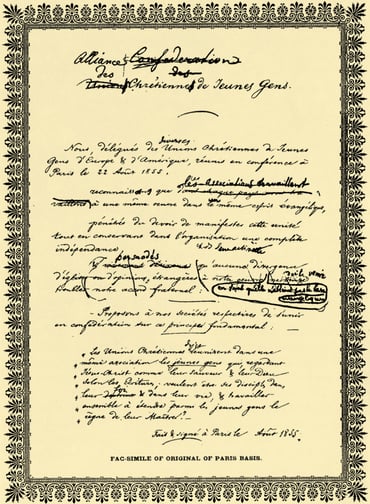 Alliance Confederation
des des
Unions Chrétiennes de Jeunes Gens.
diverses
Nous, délégués des Unions Chrétiennes de Jeunes
Gens d'Europe & d'Amérique, réunis en conférence à
Paris le 22 Août 1855.
les associations travaillant
reconnaissant que
à une même œuvre dans le même esprit Evangélique,
pénétrés du devoir de manifester cette unité
tout en conservant dans l'organisation une complète
indépendance,
persuadés
qu'aucune
d'opinions, étrangères à notre
troubler notre accord fraternel :
— Proposons à nos sociétés respectives de s'unir
en confédération sur ce principe fondamental :
Les Unions Chrétiennes réunissent dans une
même association les jeunes gens qui regardant
Jésus-Christ comme leur Sauveur & leur Dieu
selon les Ecritures, veulent être ses disciples dans
leur foi & dans leur vie & travailler
ensemble à étendre parmi les jeunes gens le
règne de leur Maître.
Fait & signé à Paris le Août 1855.
FAC-SIMILE OF ORIGINAL OF PARIS BASIS.